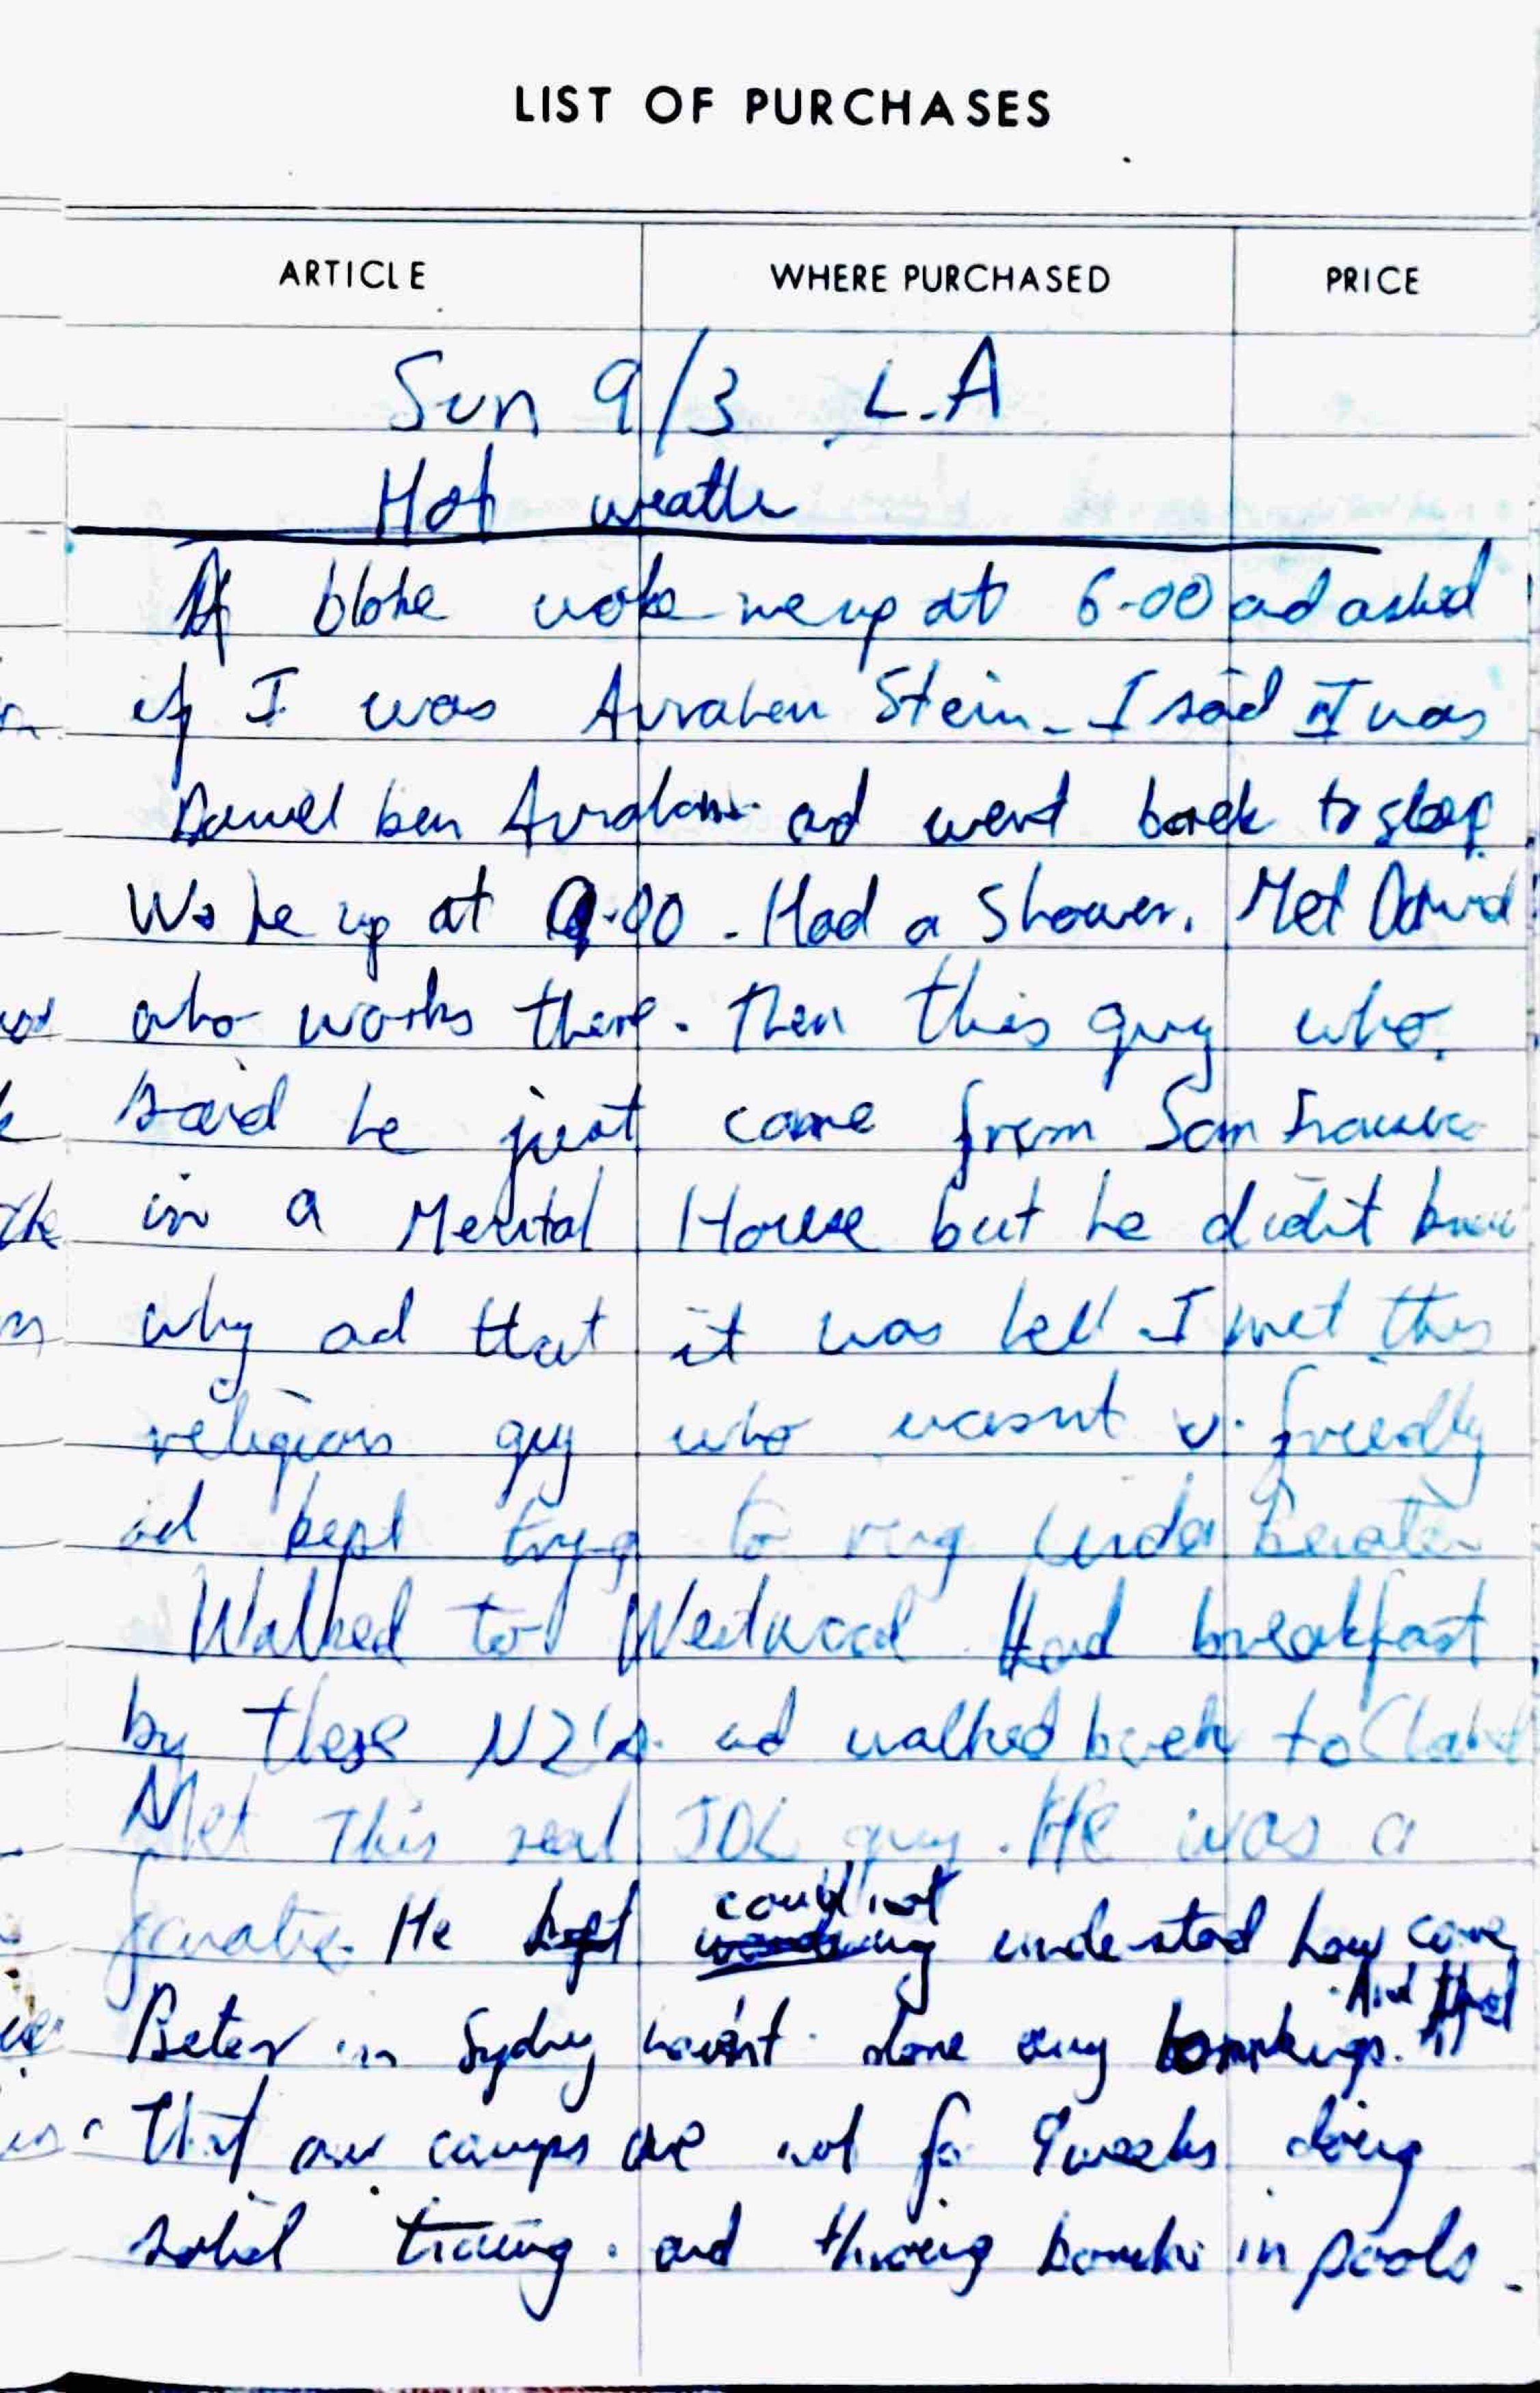 LIST OF PURCHASES
ARTICLE WHERE PURCHASED PRICE
Sun 9/3 L.A
Hot weathe
A bloke woke me up at 6-00 ad asked
if I was Avraham Stein - I said I was
Daniel ben Avraham ad went back to sleep
Woke up at 9.00 - Had a Shower. Met David
who works there. Then this guy who
said he just came from San Francisco
in a Mental House but he didn't know
why ad that it was hell I met this
religious guy who wasnt v. friendly
ad kept tryng to ring
Walked to Westwood Had breakfast
by these NZ's ad walked back to Chabad
Met This real JDL guy. He was a
fanatic. He kept could not understad how come
Betar in Sydney havent done any bombings. And that
That our camps are not for 9 weeks doing
solid traing. and throwing bombs in pools.